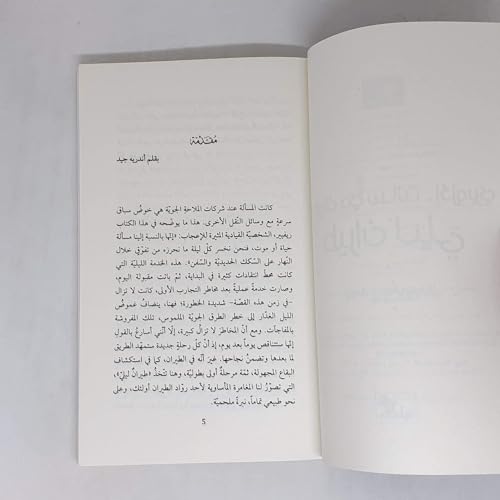 مُقدّمة
بقلم أندريه جيد
كانت المسألة عند شركات الملاحة الجويّة هي خوضُ سباق
سرعةٍ مع وسائل النّقل الأخرى. هذا ما يوضّحه في هذا الكتاب
ريفيير، الشخصيّة القيادية المثيرة للإعجاب: «إنّها بالنسبة إلينا مسألة
حياة أو موت، فنحن نخسر كلّ ليلة ما نحرزه من تفوّقٍ خلال
النّهار على السّكك الحديديّة والسّفن». هذه الخدمة الليليّة التي
كانت محطّ انتقادات كثيرة في البداية، ثمّ باتت مقبولة اليوم،
وصارت خدمةً عمليةً بعد مخاطر التجارب الأولى، كانت لا تزال
-في زمن هذه القصّة- شديدةَ الخطورة؛ فهنا، ينضافُ غموضُ
الليل الغدّار إلى خطر الطرق الجويّة الملموس، تلك المفروشة
بالمفاجآت. ومع أنّ المخاطرَ لا تزالُ كبيرة، إلّا أنّني أسارعُ بالقولِ
إنّها ستتناقص يوماً بعد يوم، إذ أنّ كلّ رحلةٍ جديدة ستمهّد الطريق
لما بعدها وتضمنُ نجاحها. غيرَ أنّه في الطيران، كما في استكشاف
البقاع المجهولة، ثمّة مرحلةٌ أولى بطوليّة، وهنا تتّخذُ «طيرانٌ ليليّ»،
التي تصوّرُ لنا المغامرة المأساوية لأحد روّاد الطيران أولئك، وعلى
نحو طبيعي تماماً، نبرةً ملحميّة.
5